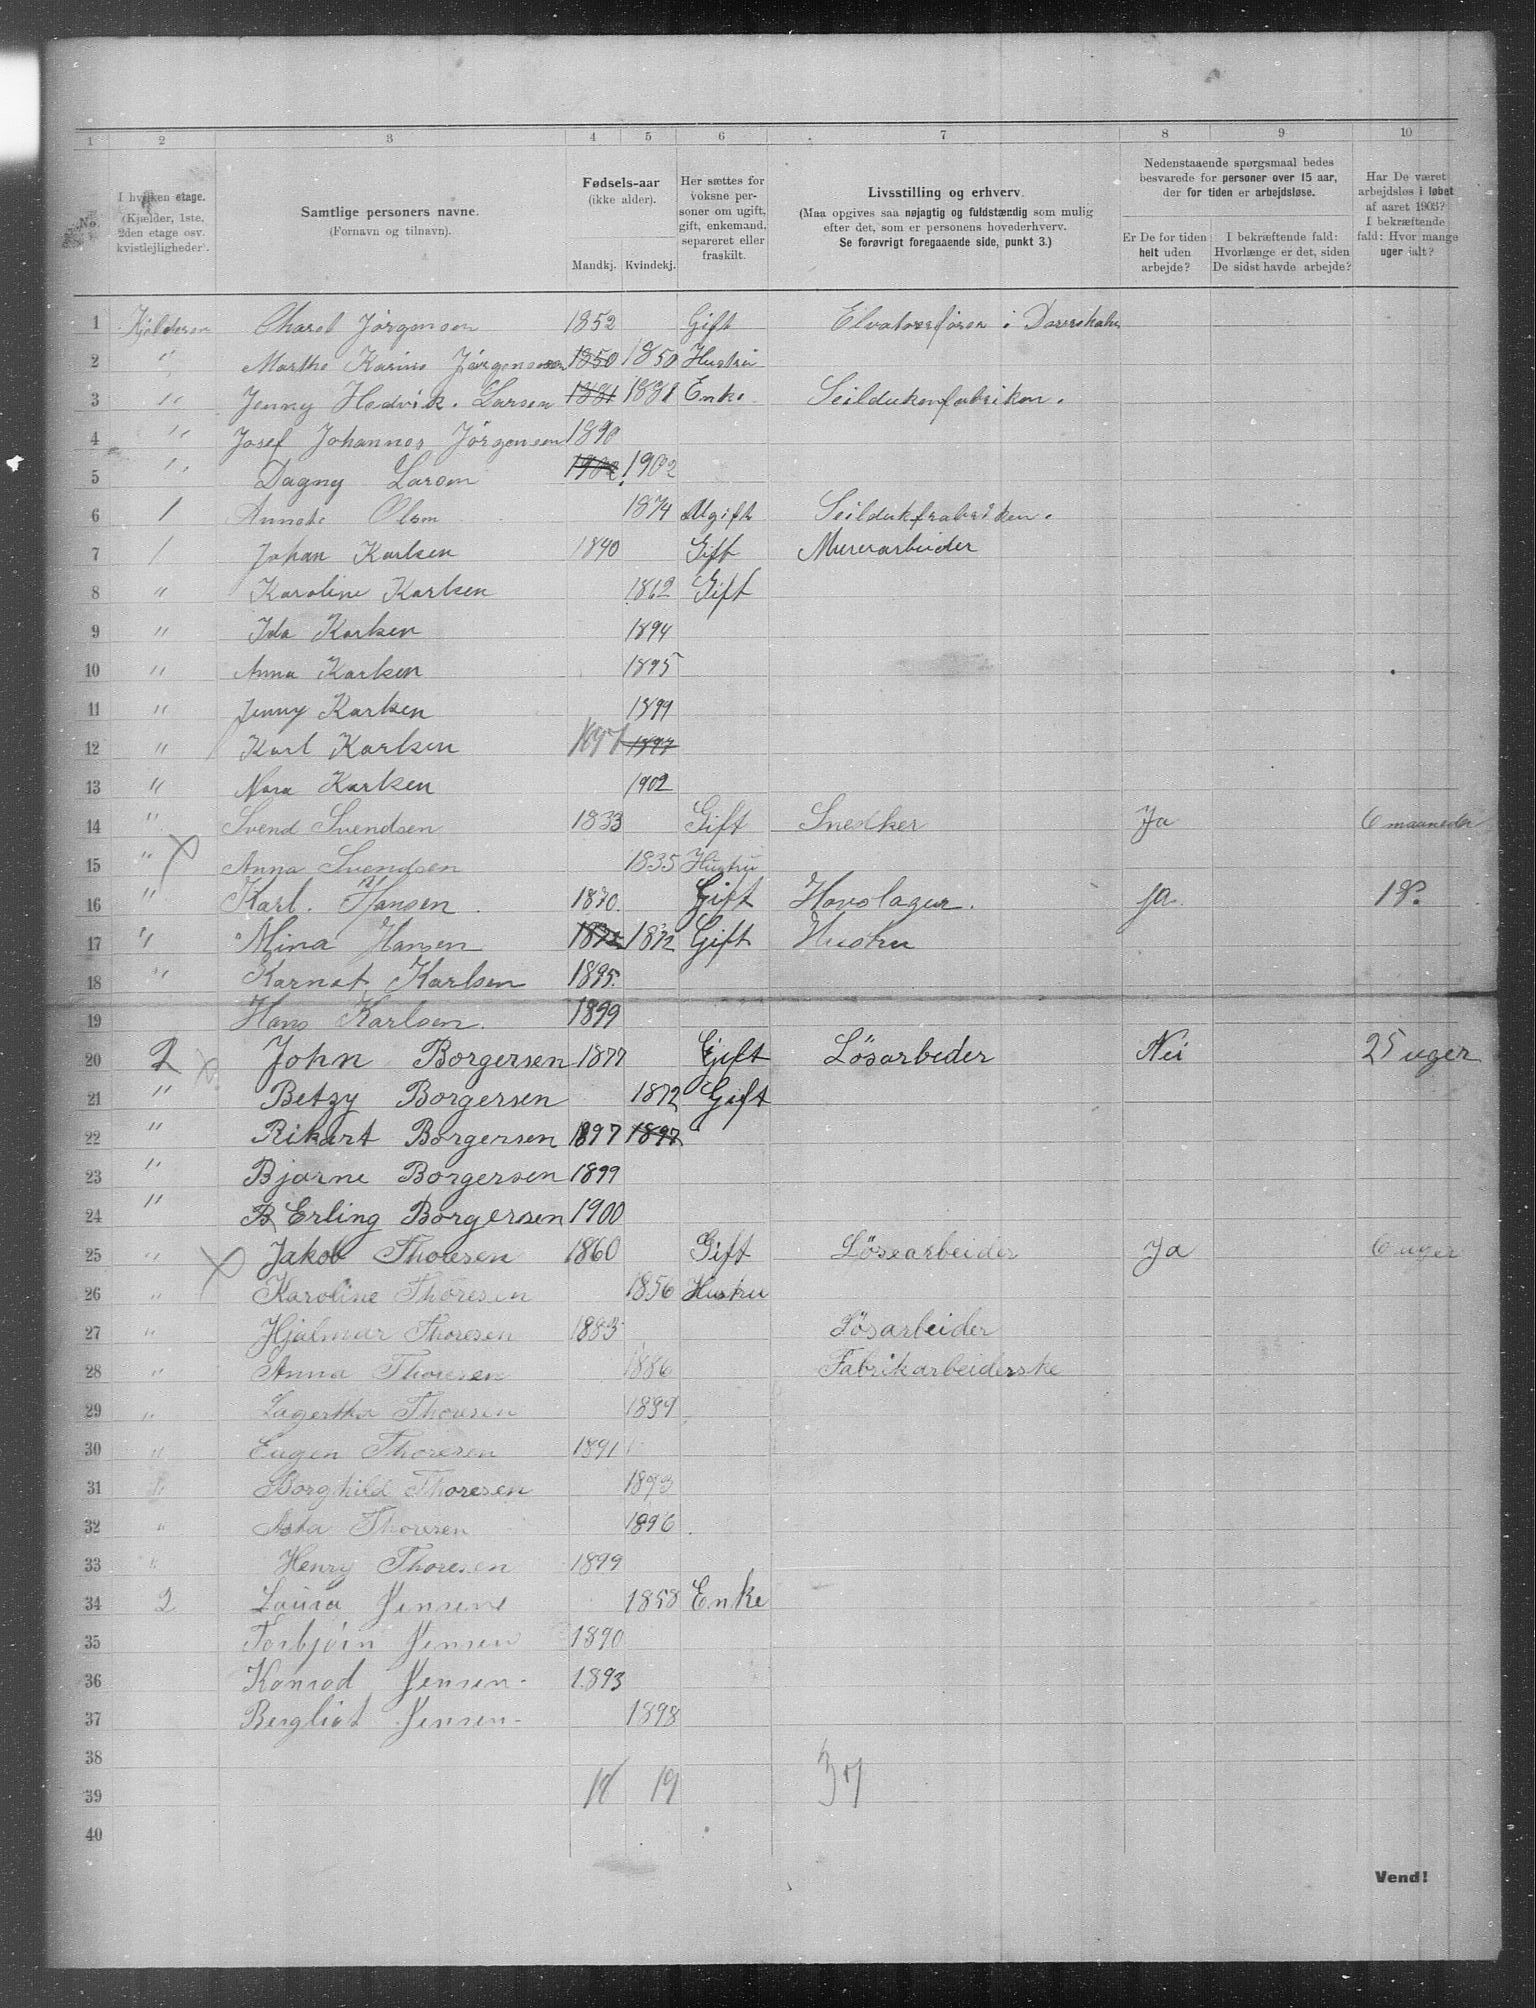 1 2 3 4 5 6 7 8 9 10
No.
I hvilken etage. (Kjælder, 1ste, 2den etage osv. kvistlejligheder).
Samtlige personers navne.
(Fornavn og tilnavn).
Fødsels-aar
(ikke alder).
Mandkj. Kvindekj.
Her sættes for voksne personer om ugift, gift, enkemand, separeret eller fraskilt.
Livsstilling og erhverv.
(Maa opgives saa nøjagtig og fuldstændig som mulig efter det, som er personens hovederhverv.
Se forøvrigt foregaaende side, punkt 3.)
Nedenstaaende spørgsmaal bedes besvarede for personer over 15 aar, der for tiden er arbejdsløse.
Er De for tiden helt uden arbejde?
I bekræftende fald: Hvorlænge er det, siden De sidst havde arbejde?
Har De været arbejdsløs i løbet af aaret 1903? I bekræftende fald: Hvor mange uger ialt?
1 Kjelderen Jørgensen 1852 Gift i
2 " Marthe Karine Jørgensen 1850 1850 Hustru
3 " Jenny Hedvik. Larsen 1881 1881 Enke Seildukenfabriken.
4 " Josef Johannes Jørgensen 1890
5 " Dagny Larsen 1902 1902
6 1 Annete Olsen 1874 Ugift Seildukfrabriken.
7 1 Johan Karlsen 1840 Gift Murerarbeider
8 " Karoline Karlsen 1862 Gift
9 " Ida Karlsen 1894
10 " Anna Karlsen 1895
11 " Jenny Karlsen 1899
12 " Karl Karlsen 1897 1897
13 " Nora Karlsen 1902
14 " Svend Svendsen 1833 Gift Snedker Ja 6 maaneder
15 " Anna Svendsen 1835 Hustru
16 " Karl. Hansen 1870. Gift Hovslager. ja. 18.
17 " Mina Hansen 1872 1872 Gift Hustru
18 " Karnat Karlsen 1895.
19 Hans Karlsen. 1899
20 2 John Borgersen 1877 Gift Løsarbeder Nei 25 uger
21 " Betzy Borgersen 1872 Gift
22 " Rikart Borgersen 1897 1897
23 " Bjarne Borgersen 1899
24 " B Erling Borgersen 1900
25 " Jakob Thoresen 1860 Gift Løsearbeider Ja 6 uger
26 " Karoline Thoresen 1856 Hustru
27 " Hjalmar Thoresen 1883 Løsarbeider
28 " Anna Thoresen 1886 Fabrikarbeiderske
29 " Lagertha Thoresen 1889
30 " Eugen Thoresen 1891
31 " Borghild Thoresen 1893
32 " Asta Thoresen 1896
33 " Henry Thoresen 1899
34 2 Laura Jensen 1858 Enke
35 Torbjørn Jensen 1890
36 Konrad Jensen- 1893
37 Bergliot Jensen- 1898
38
39 18 19 37
40
Vend!